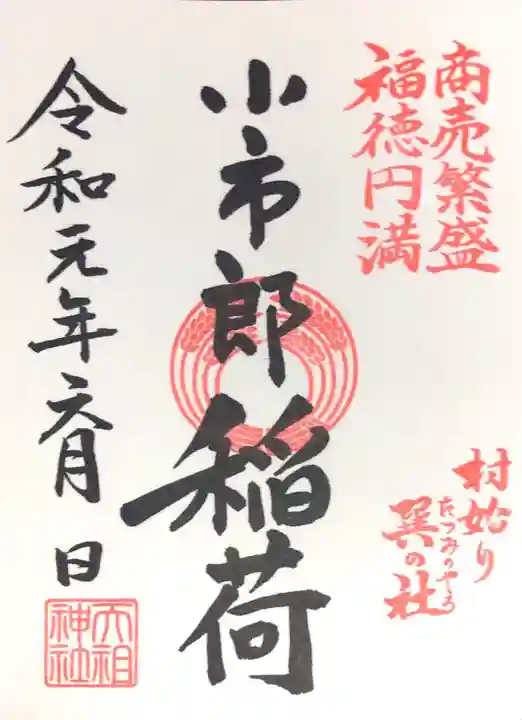 商売繁盛
福徳円満
村始り
巽の社
たつみのやしろ
小市郎稲荷
令和元年六月 日
天祖
神社